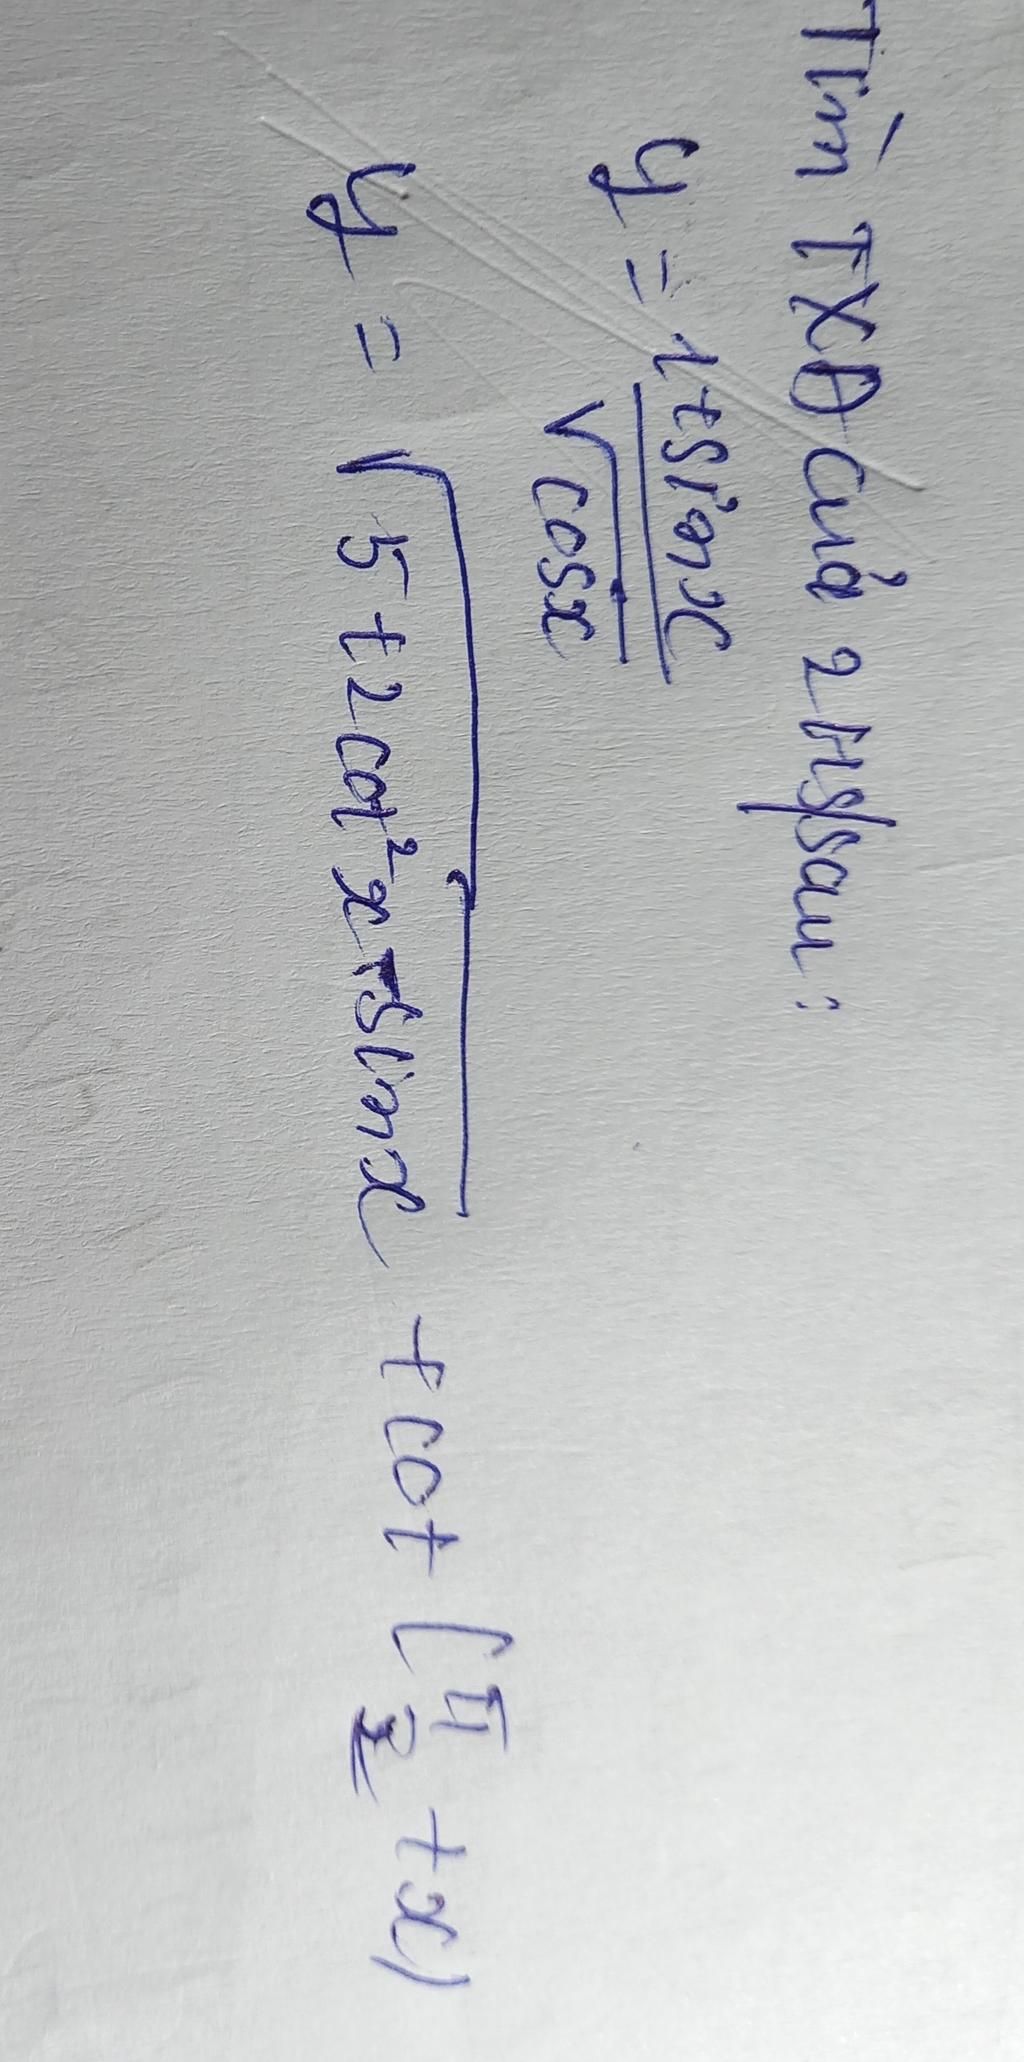 Tìm TXĐ của 2 HS sau:
y = 1+sinx / √cosx
y = √5+2cot²x-sinx + cot (π/2 + x)